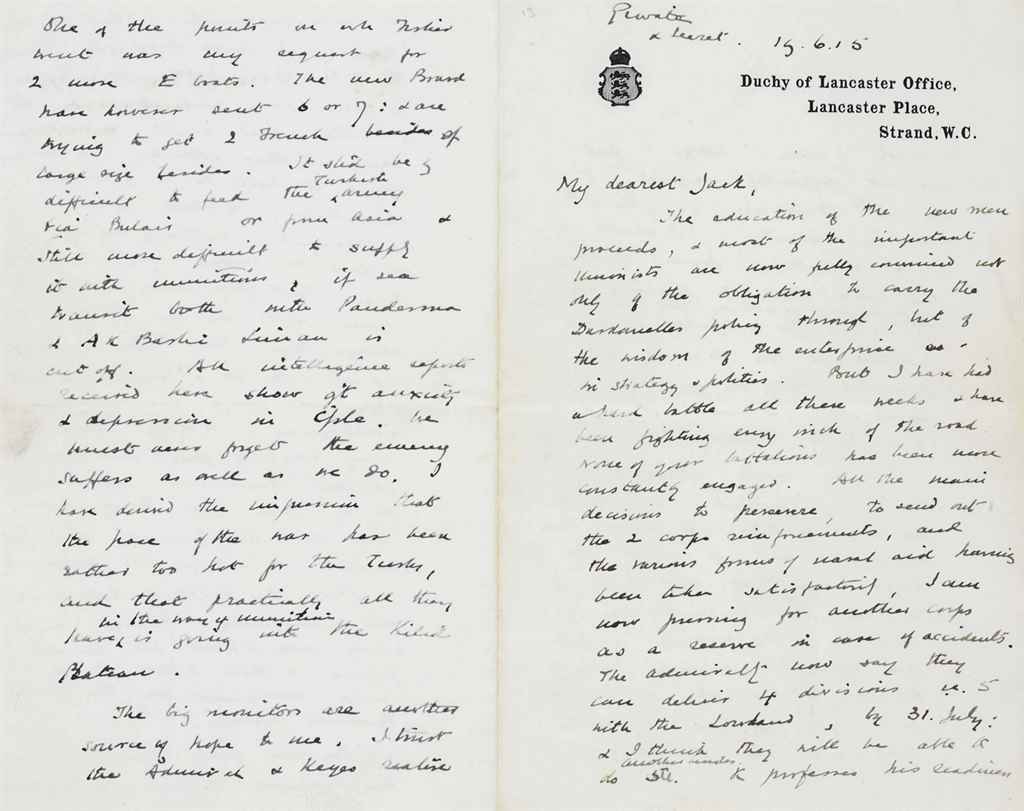 Private
& Secret.
19.6.15
Duchy of Lancaster Office,
Lancaster Place,
Strand, W.C.
My dearest Jack,
The education of the new men
proceeds, & most of the important
Unionists are now fully convinced not
only of the obligation to carry the
Dardanelles policy through, but of
the wisdom of the enterprise
in strategy & politics. But I have had
a hard battle all these weeks & have
been fighting every inch of the road.
None of your battalions has been more
constantly engaged. All the main
decisions to persevere, to send out
the 2 corps reinforcements, and
the various forms of naval aid having
been taken satisfactorily, I am
now pressing for another corps
as a reserve in case of accidents.
The Admiralty now say they
can deliver 4 divisions i.e. 5
with the Lowland, by 31. July:
& I think they will be able to
do still another besides. K professes his readiness
One of the points on wh Fisher
went was my request for
2 more E boats. The new Board
have however sent 6 or 7: & are
trying to get 2 French besides of
large size besides. It shd be
difficult to feed the Turkish army
via Bulair or from Asia &
still more difficult to supply
it with munitions, if sea
transit both with Panderma
& Ak Bashi Liman is
cut off. All intelligence reports
received here show gt anxiety
& depression in Cple. We
must never forget the enemy
suffers as well as we do. I
have derived the impression that
the pace of the war has been
rather too hot for the Turks,
and that practically all they
have in the way of munitions is going into the Kilid
Plateau.
The big monitors are another
source of hope to me. I trust
the Admiral & Keyes realise